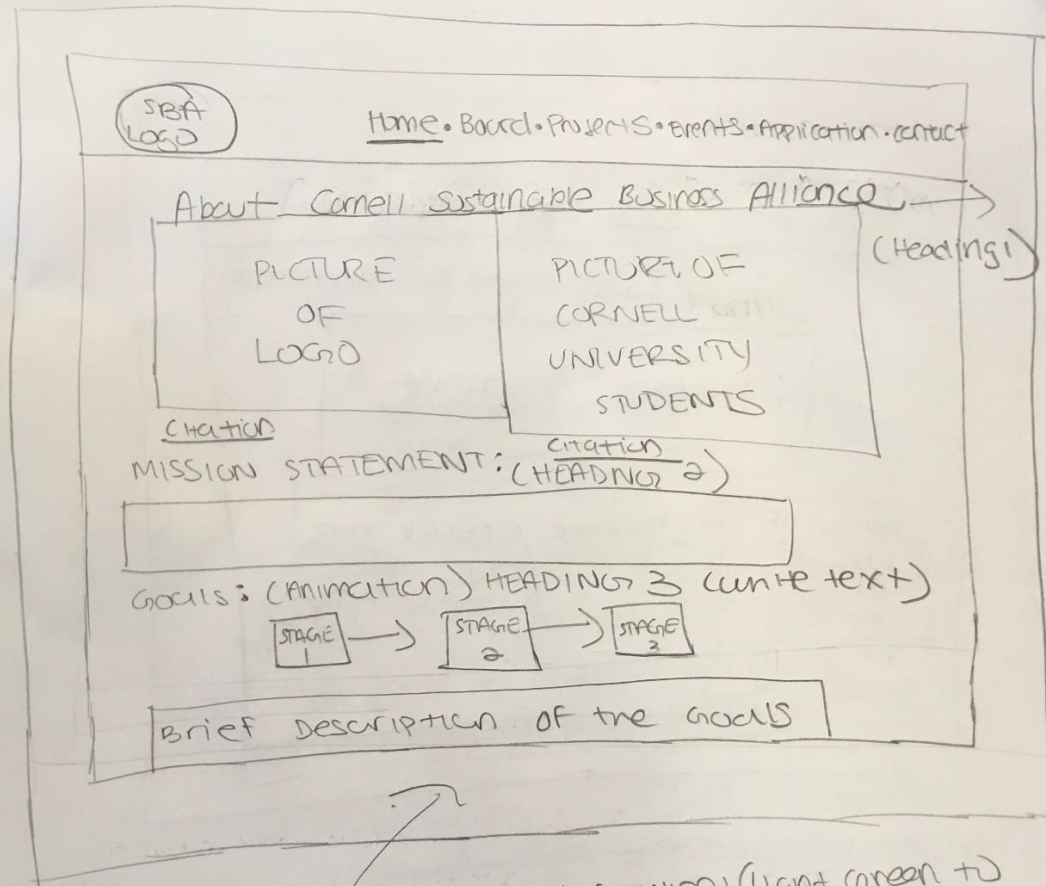 SBA
LOGO
Home • Board • Projects • Events • Application • contact
About Cornell Sustainable Business Alliance
(Heading 1)
PICTURE
OF
LOGO
PICTURE OF
CORNELL
UNIVERSITY
STUDENTS
Citation
Citation
MISSION STATEMENT: (HEADING 2)
Goals: (Animation) HEADING 3 (write text)
STAGE
1
STAGE
2
STAGE
3
Brief Description of the Goals
(light green to